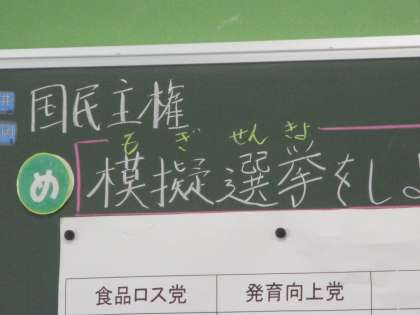 国民主権
もぎ せんきょ
め 模擬選挙をしよ
食品ロス党 発育向上党